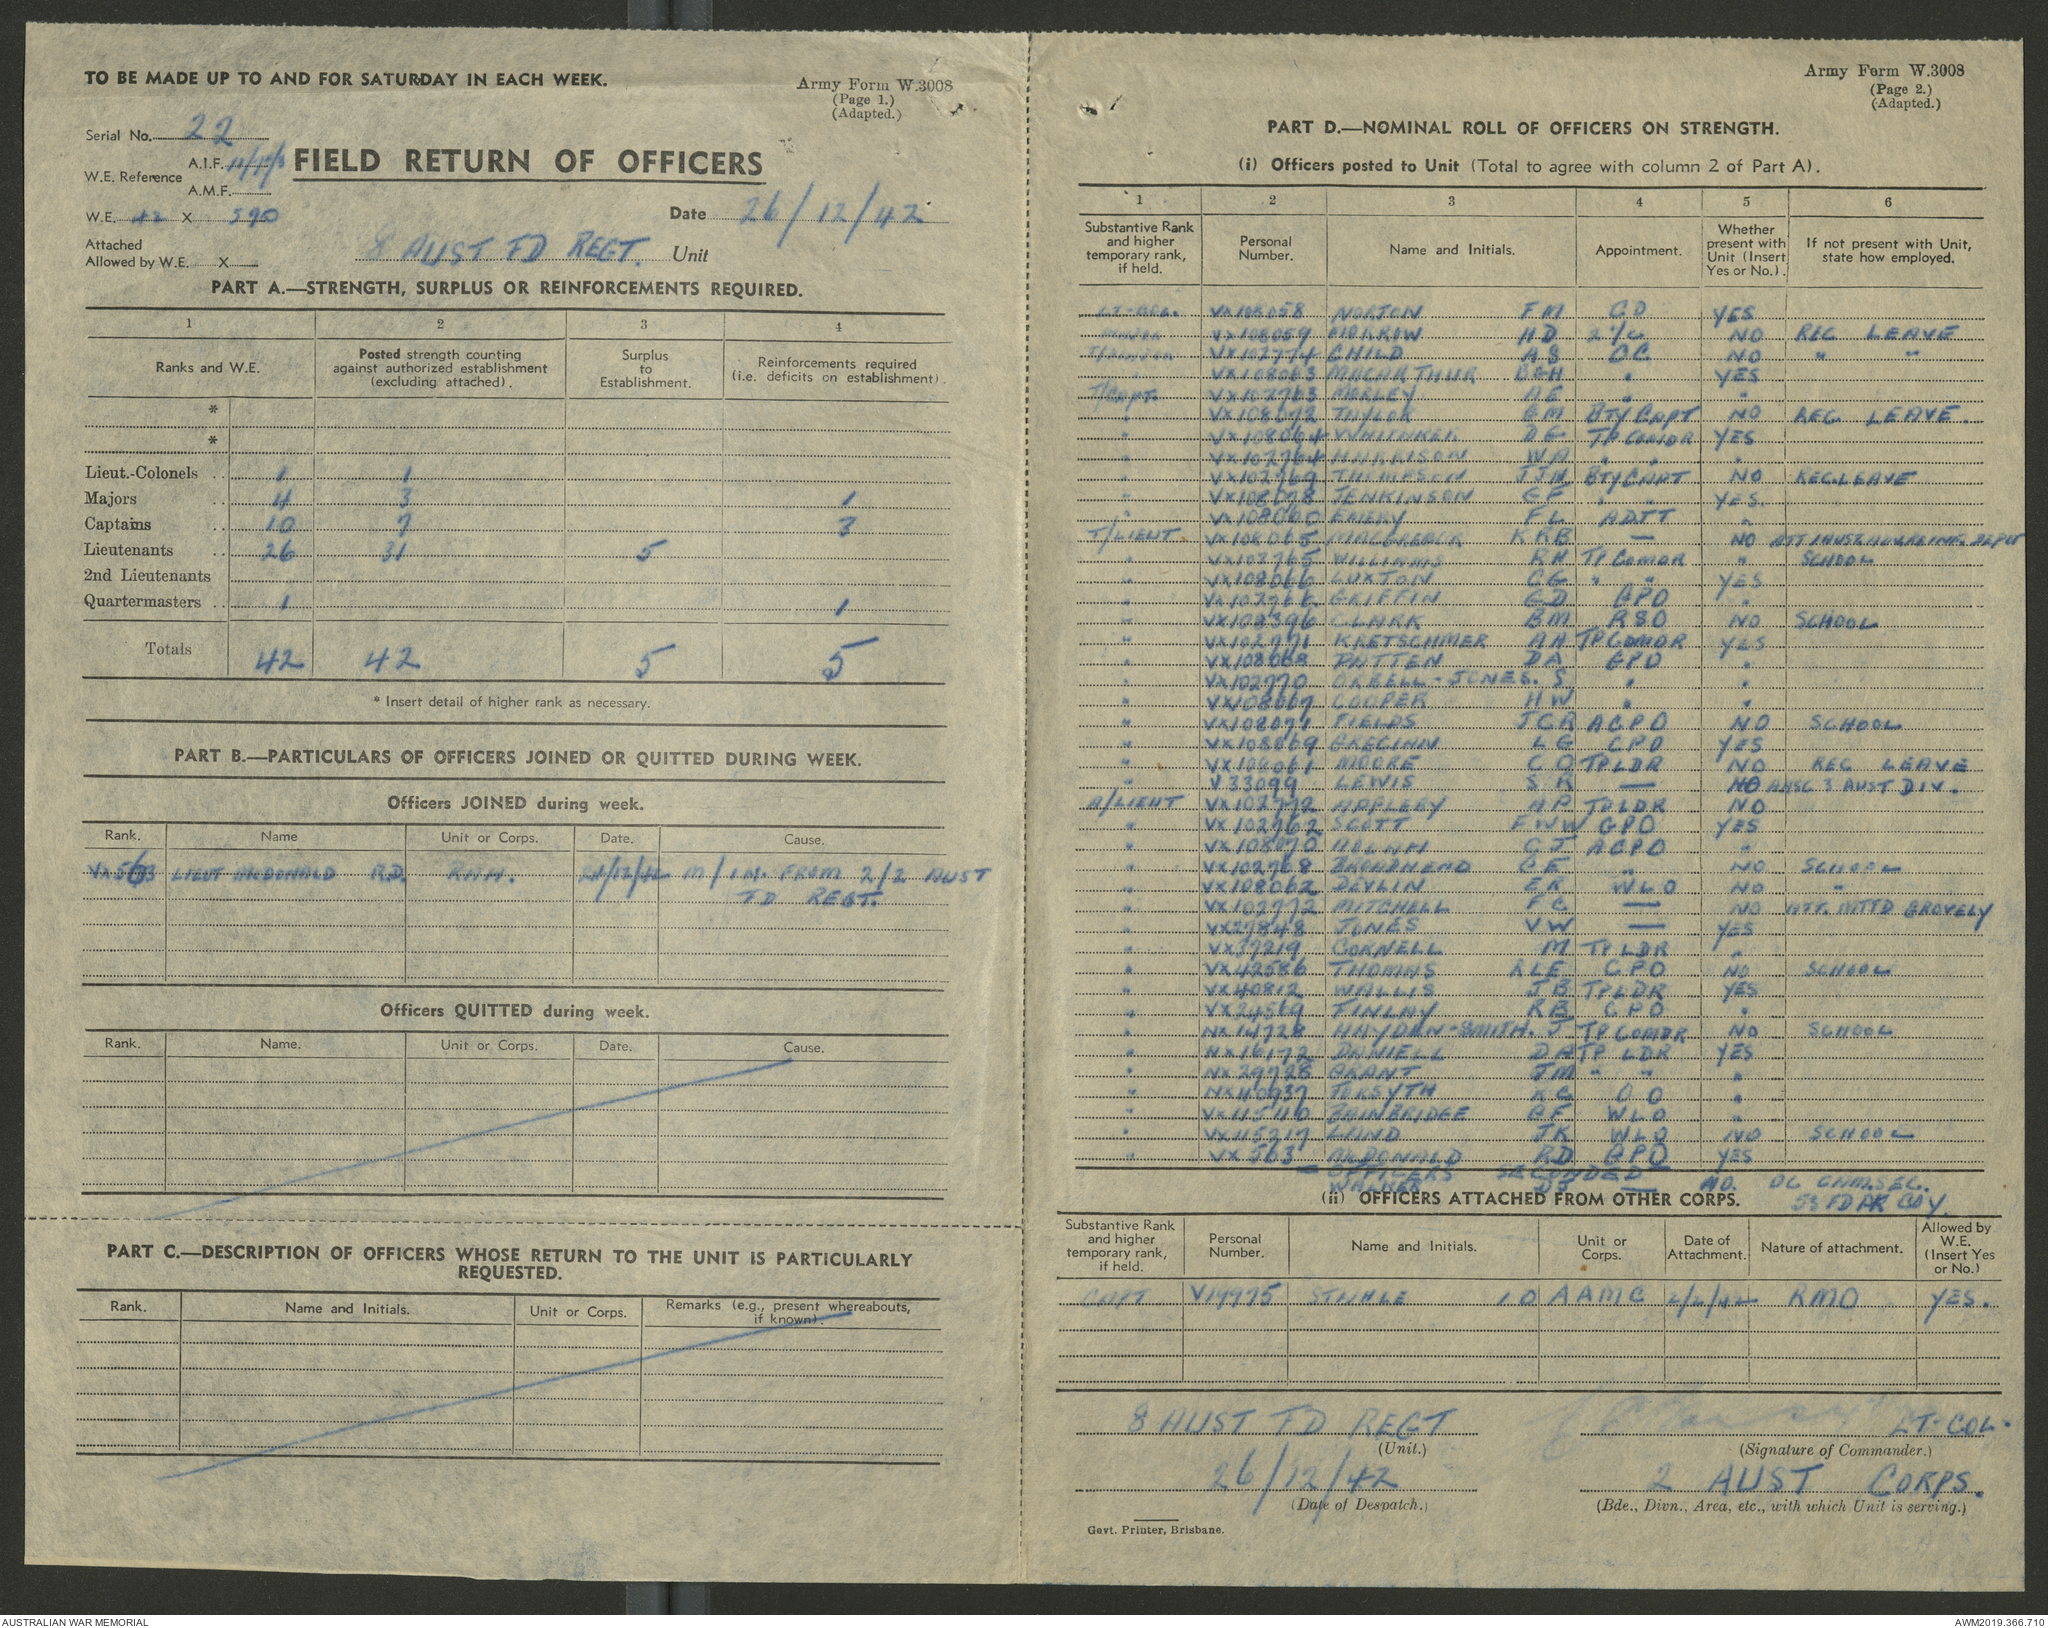 TO BE MADE UP TO AND FOR SATURDAY IN EACH WEEK.
Army Form W.3008
(Page 1.)
(Adapted.)
Serial No. 22
W.E. Reference A.I.F.
A.M.F.
FIELD RETURN OF OFFICERS
W.E. 42 X 590
Date 26/12/42
Attached
Allowed by W.E. X
8 AUST FD REGT. Unit
PART A.—STRENGTH, SURPLUS OR REINFORCEMENTS REQUIRED.
1 2 3 4
Ranks and W.E. Posted strength counting against authorized establishment (excluding attached). Surplus to Establishment. Reinforcements required (i.e. deficits on establishment).
*
*
Lieut.-Colonels .. 1 1
Majors .. 4 3 1
Captains .. 10 7 3
Lieutenants .. 26 31 5
2nd Lieutenants
Quartermasters .. 1 1
Totals 42 42 5 5
* Insert detail of higher rank as necessary.
PART B.—PARTICULARS OF OFFICERS JOINED OR QUITTED DURING WEEK.
Officers JOINED during week.
Rank. Name Unit or Corps. Date. Cause.
VX563 LIEUT McDONALD R.D. R.A.A. 21/12/42 M/IN. FROM 2/2 AUST
FD REGT.
Officers QUITTED during week.
Rank. Name. Unit or Corps. Date. Cause.
PART C.—DESCRIPTION OF OFFICERS WHOSE RETURN TO THE UNIT IS PARTICULARLY
REQUESTED.
Rank. Name and Initials. Unit or Corps. Remarks (e.g., present whereabouts, if known).
Army Form W.3008
(Page 2.)
(Adapted.)
PART D.—NOMINAL ROLL OF OFFICERS ON STRENGTH.
(i) Officers posted to Unit (Total to agree with column 2 of Part A).
1 2 3 4 5 6
Substantive Rank and higher temporary rank, if held. Personal Number. Name and Initials. Appointment. Whether present with Unit (Insert Yes or No.). If not present with Unit, state how employed.
LT-COL. VX108058 NORTON FM CO YES
MAJOR VX108059 MORROW HD 2 I/C NO REC LEAVE
T/MAJOR VX102774 CHILD AS OC NO " "
" VX108063 MACARTHUR B&H " YES
T/CAPT. VX102763 MORLEY AE " "
" VX108072 TAYLOR GM BTY CAPT NO REC LEAVE.
" VX108064 WHITAKER DG TP COMDR YES
" VX102764 HARRISON WA " " "
" VX102769 THOMPSON JJH BTY CAPT NO REC LEAVE
" VX108078 JENKINSON GF " YES.
" VX108060 EMERY FL ADJT "
T/LIEUT VX108065 KRB — NO
" VX102765 WILLIAMS RH TP COMDR " SCHOOL
" VX108066 LUXTON CG " " YES
" GRIFFIN GD GPO "
" VX102396 CLARK BM RSO NO SCHOOL
" VX102771 KRETSCHMER AH TP COMDR YES
" VX108068 PATTEN DA GPO "
" VX102770 ORBELL-JONES. S. " "
" VX108067 COOPER HW " "
" VX108071 FIELDS JCR ACPO NO SCHOOL
" VX108069 GRECIAN LG CPO YES
" VX108061 MOORE CO TP LDR NO REC LEAVE
" V 33099 LEWIS S.R — NO AASC 3 AUST DIV.
A/LIEUT VX102772 APPLEBY AP TP LDR NO
" VX102762 SCOTT FWW GPO YES
" VX108070 CJ ACPO "
" VX102768 BROADHEAD CE " NO SCHOOL
" VX108062 DEVLIN ER WLO NO "
" VX102772 MITCHELL FC — NO ATT. MTTD GROVELY
" VX27848 JONES VW — YES
" VX37219 CORNELL M TP LDR "
" VX42586 THOMAS RLE CPO NO SCHOOL
" VX40812 WALLIS JB TP LDR YES
" VX24569 FINLAY RB CPO "
" NX14728 HAYDEN-SMITH. J TP COMDR NO SCHOOL
" NX16172 DANIELL DA TP LDR YES
" NX29728 GRANT JM " " "
" NX40937 FORSYTH RC OO "
" VX115110 BAINBRIDGE GF WLO "
" VX115217 LAND JK WLO NO SCHOOL
" VX563 McDONALD RD GPO YES
— OFFICERS SECONDED —
WALKER DJ — NO. OC CAM. SEC.
53 FD PK COY.
(ii) OFFICERS ATTACHED FROM OTHER CORPS.
Substantive Rank and higher temporary rank, if held. Personal Number. Name and Initials. Unit or Corps. Date of Attachment. Nature of attachment. Allowed by W.E. (Insert Yes or No.)
CAPT V19975 STAHLE IO AAMC 2/2/42 RMO YES.
8 AUST FD REGT
(Unit.)
LT-COL.
(Signature of Commander.)
26/12/42
(Date of Despatch.)
2 AUST CORPS.
(Bde., Divn., Area, etc., with which Unit is serving.)
Govt. Printer, Brisbane.
AUSTRALIAN WAR MEMORIAL
AWM2019.366.710